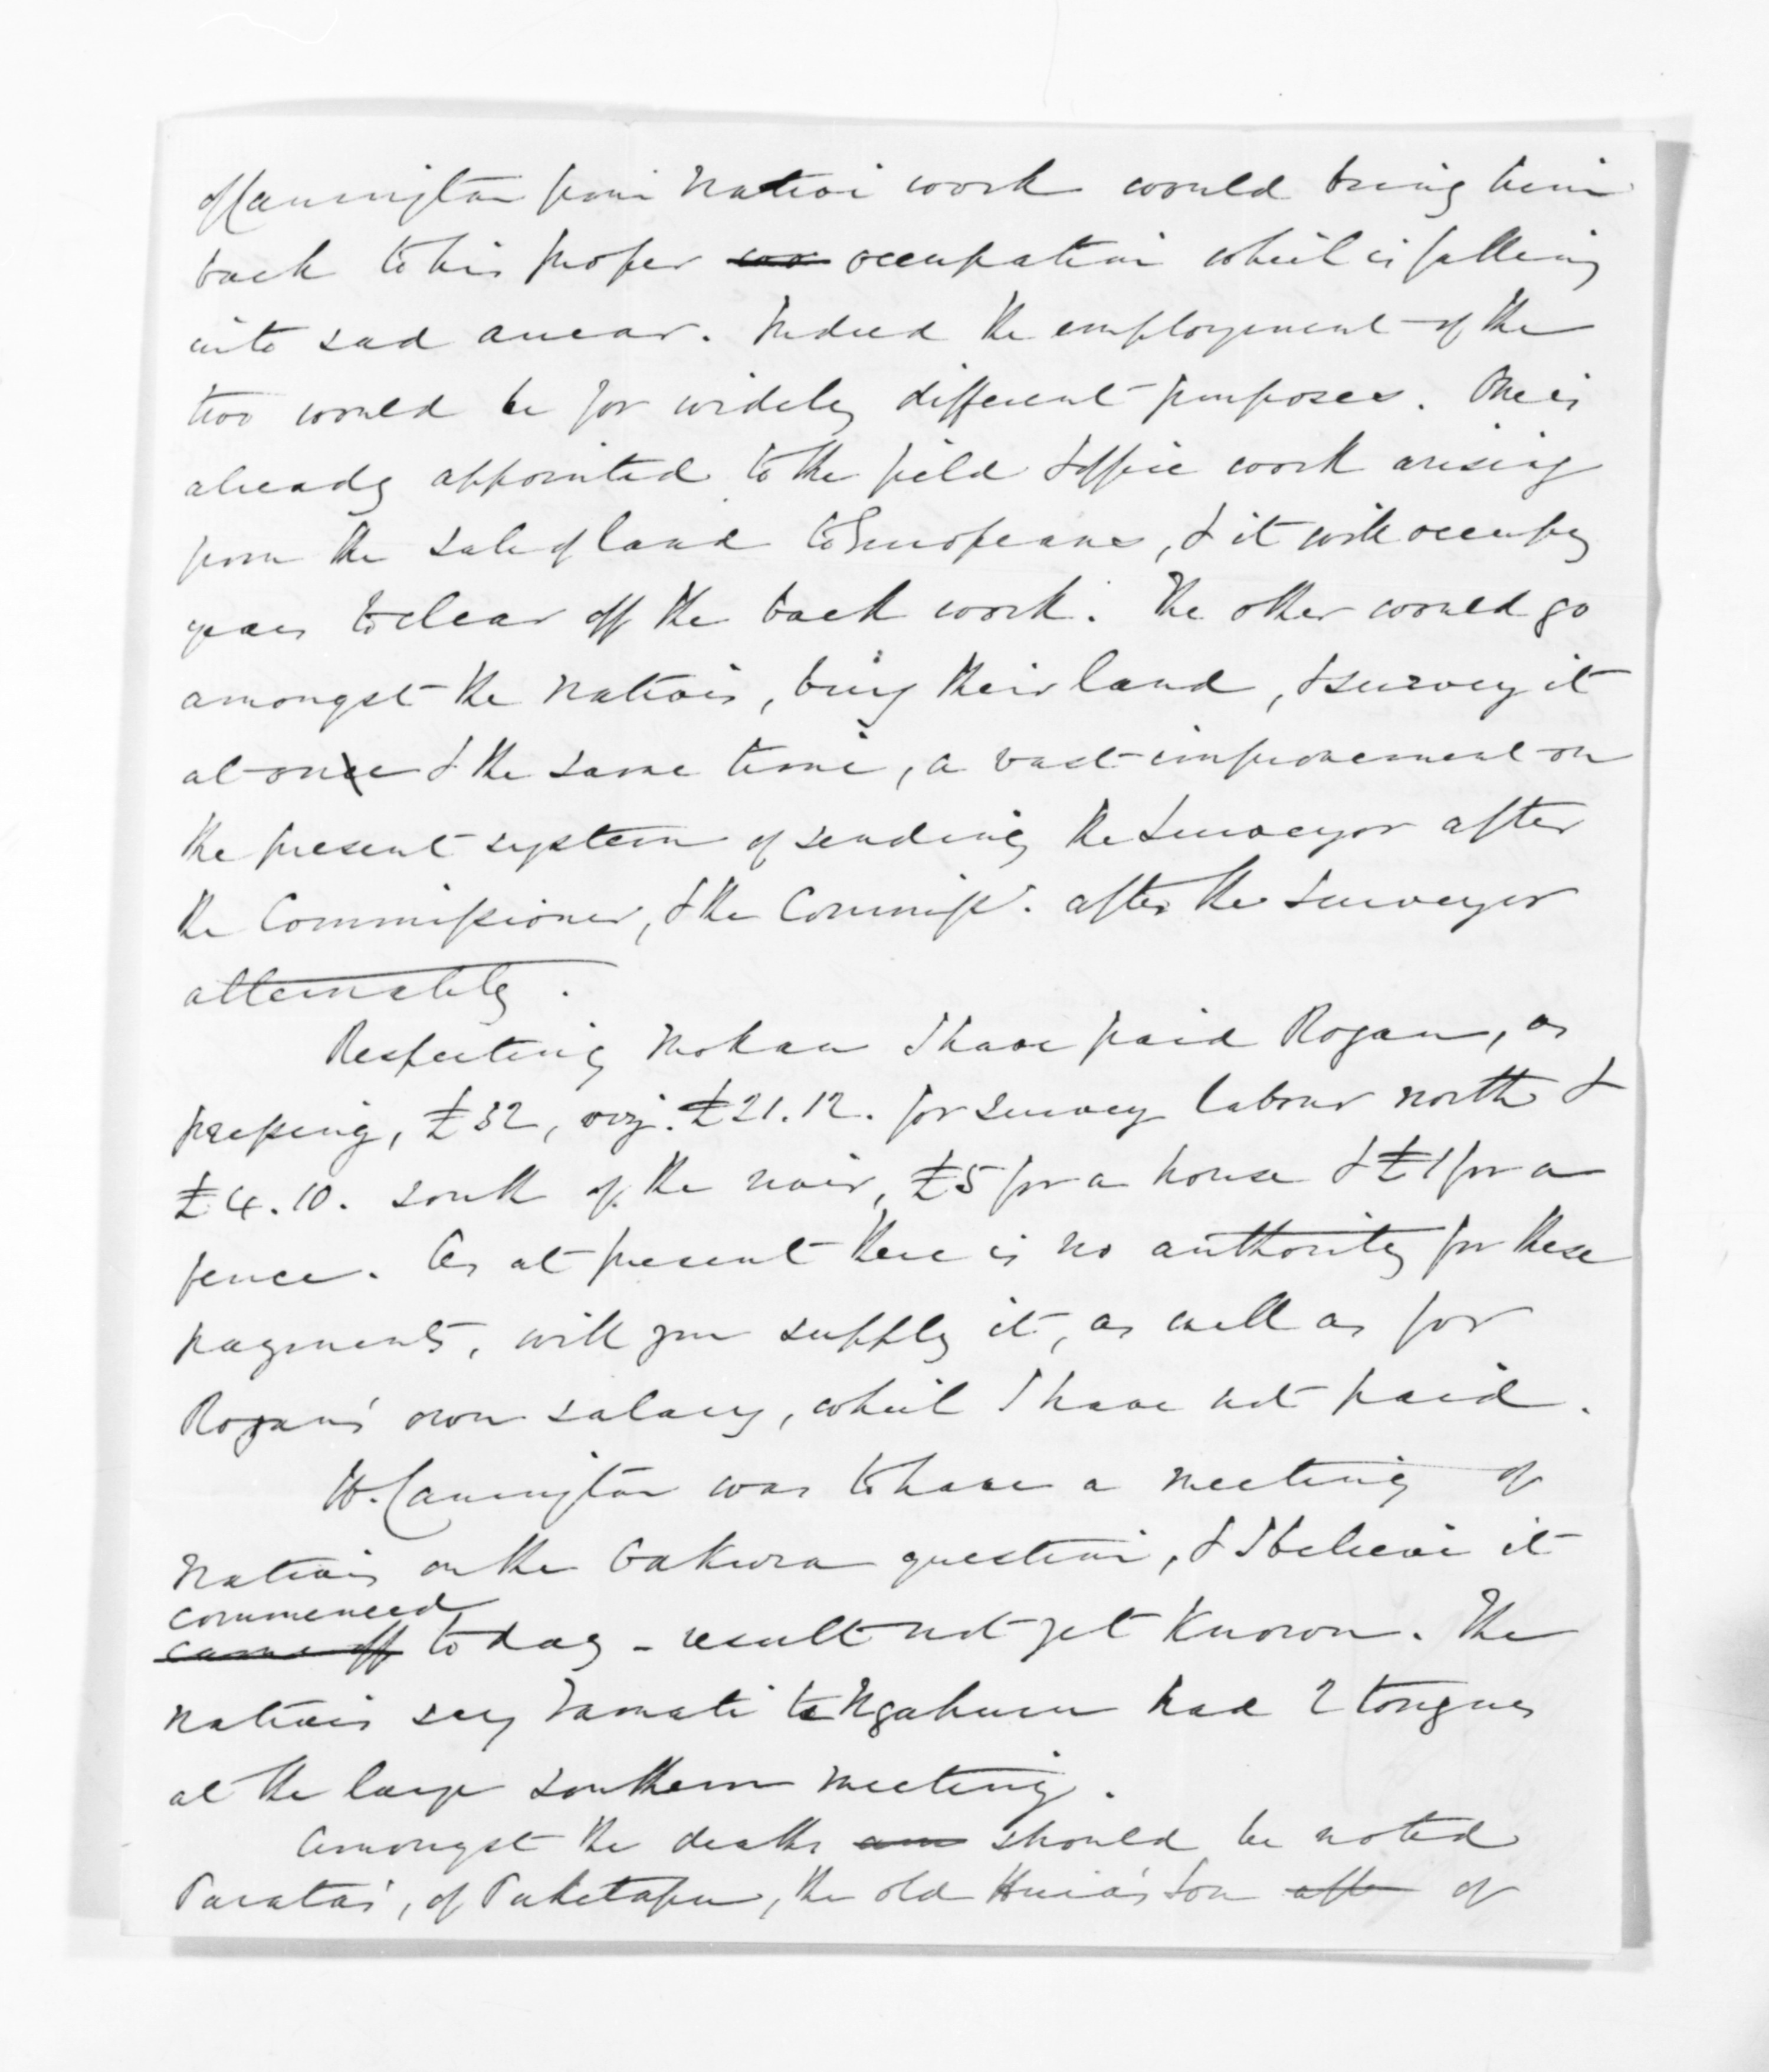 of Carrington from Native work would bring him
back to his proper wo occupation which is falling
into sad arrear. Indeed the employement of the
two would be for widely different purposes. One is
already appointed to the field & office work arising
from the sale of land to Europeans, & it will occupy
years to clear off the back work. The other would go
amongst the natives, buy their land, & survey it
at one & the same time, a vast improvement on
the present system of sending the Surveyor after
the Commissioner, & the Commissr. after the Surveyor
alternately.
Respecting Mokau I have paid Rogan, as
pr☐ £32, viz. £21.12. for survey labour north &
£4.10. south of the river, £5 for a house & £1 for a
fence. As at present there is no authority for these
payments, will you supply it, as well as for
Rogan's own salary, which I have not paid.
W. Carrington was to have a meeting of
Natives on the Oakura question, & I believe it
commenced
came off today - result not yet known. The
natives say Tamati te Ngahuru had 2 tongues
at the large southern meeting.
Amongst the deaths am should be noted
Parata's, of Puketapu, the old Huia's son afte of